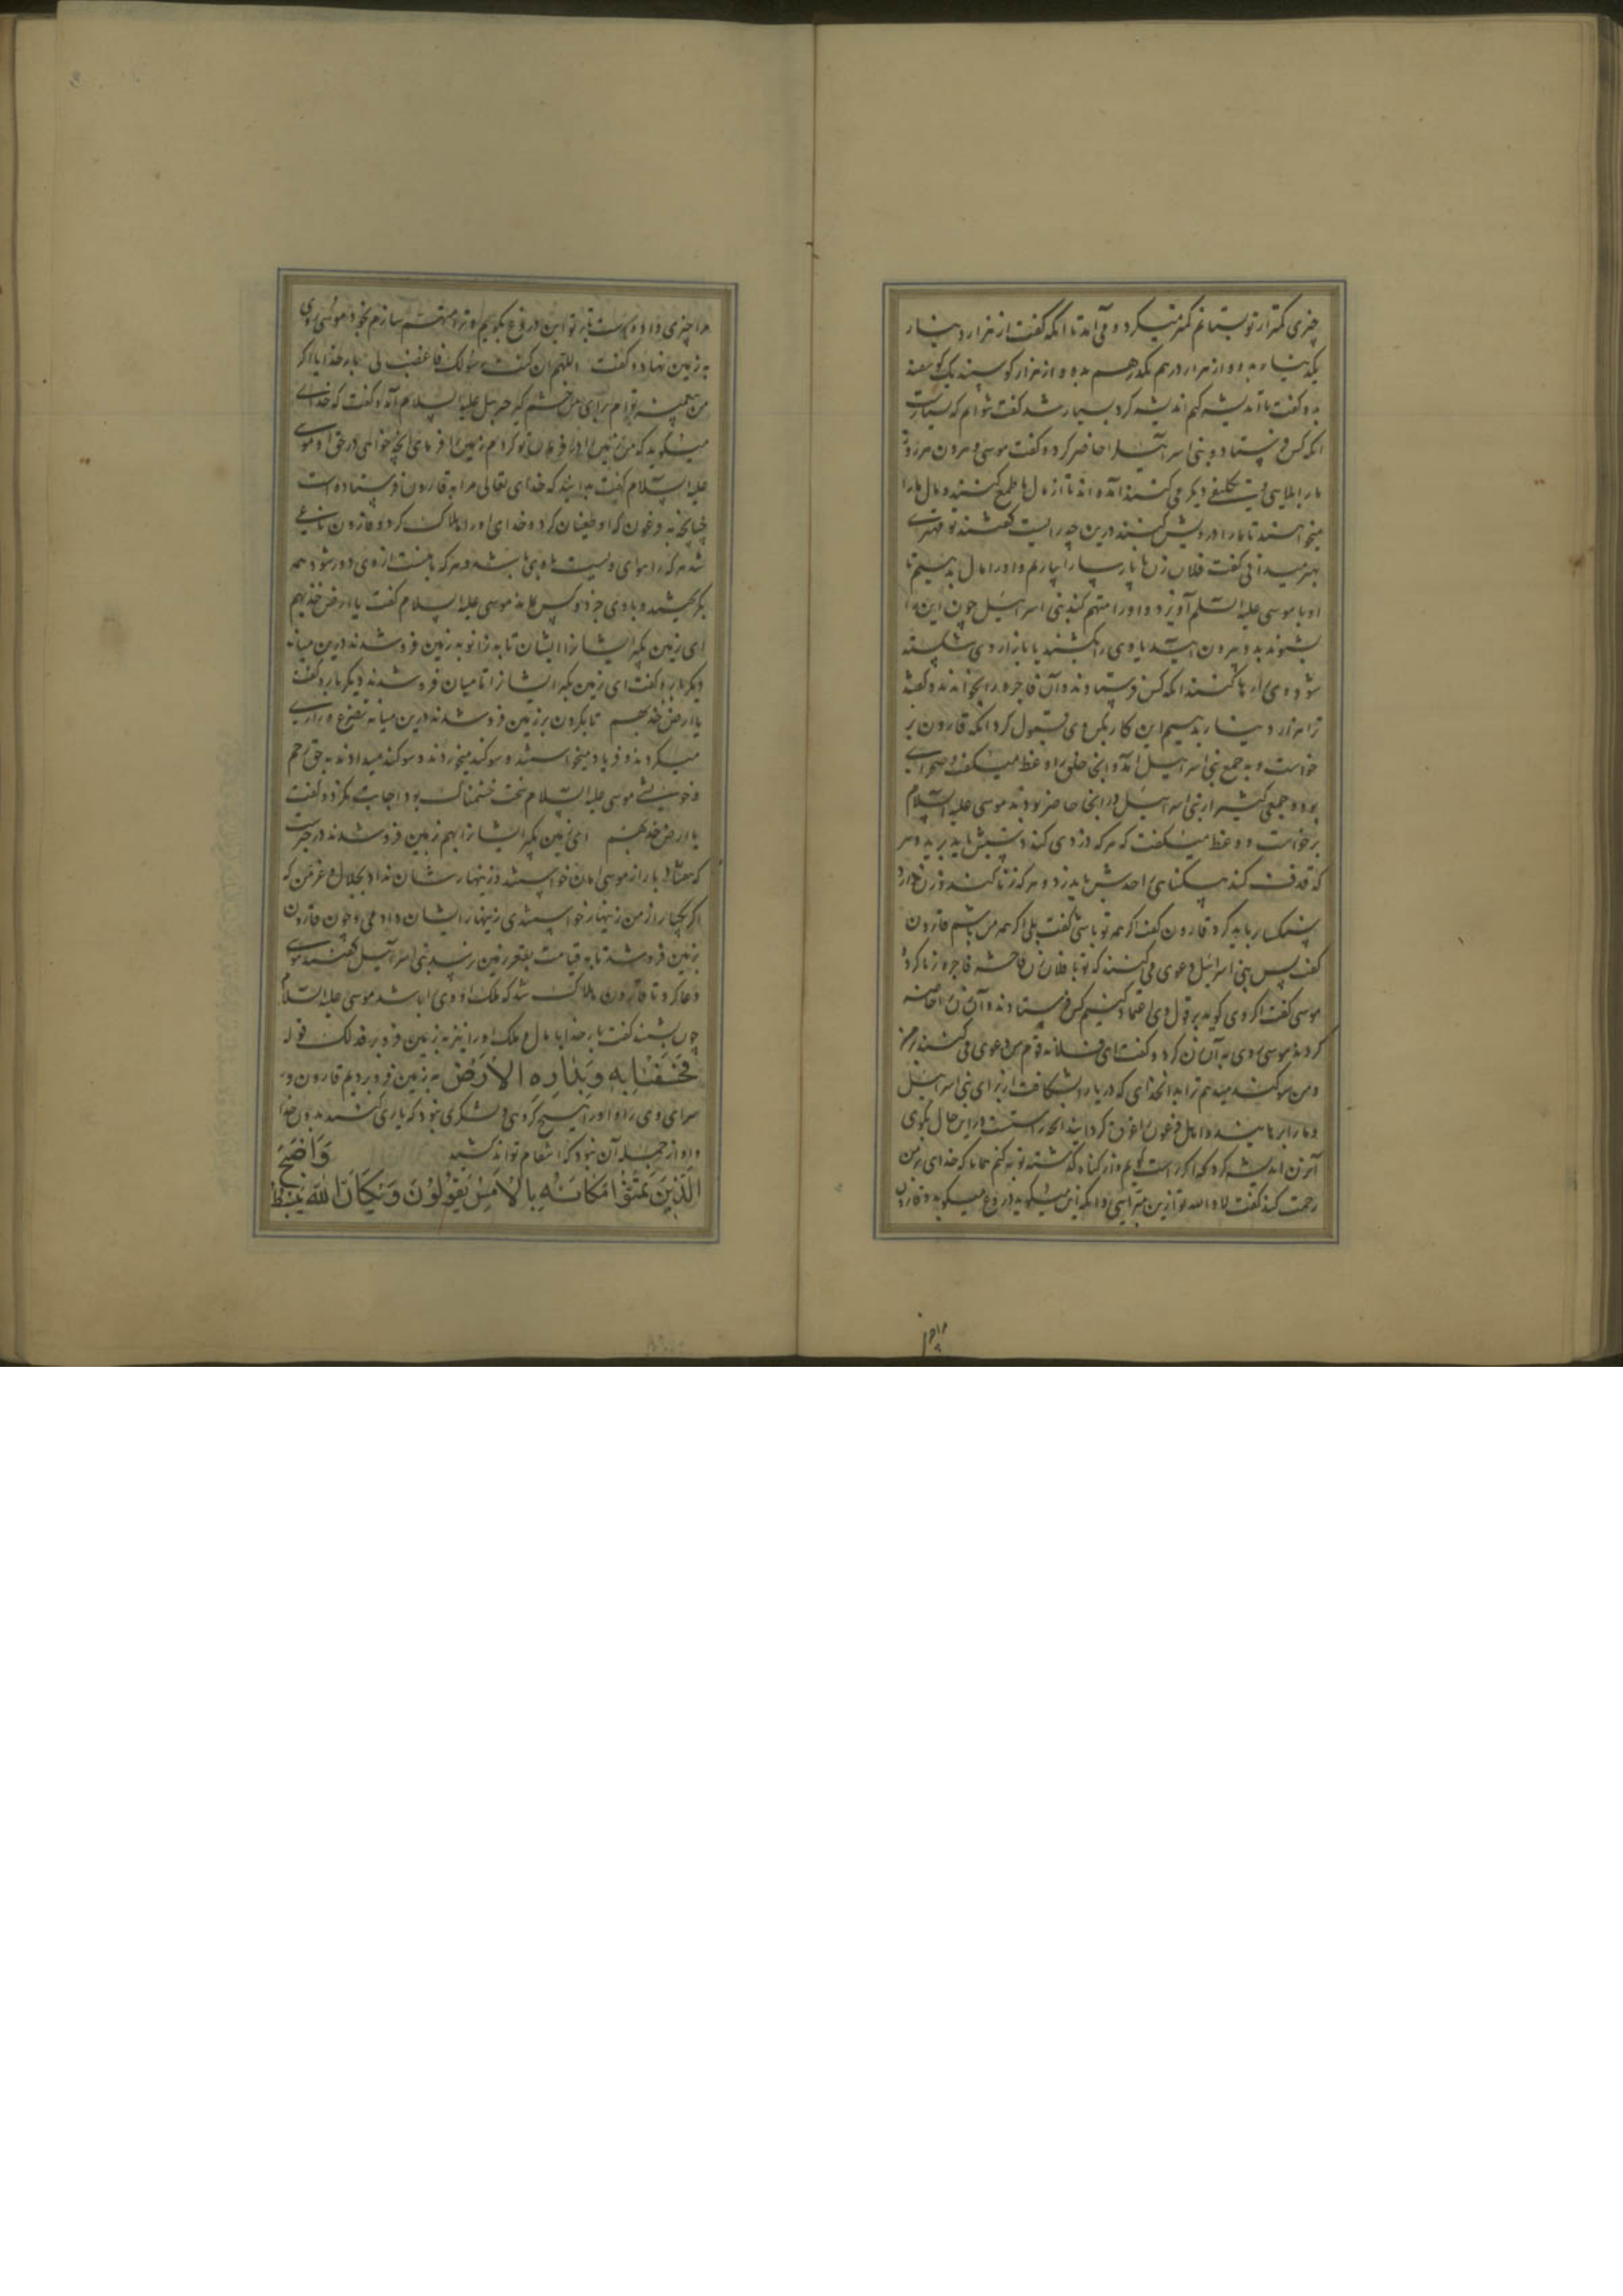 چیزی کمتر از تو بستانم کمتر میکرد و می آمد تا آنکه گفت از هزار دینار
یکدینار بده و از هزار درهم یکدرهم بده و از هزار گوسپند یک گوسفند
بده گفت تا اندیشه کنم اندیشه کرد بسیار شد گفت نتوانم که بسیارست
آنکه کس فرستاد و بنی اسرائیل را حاضر کرد و گفت موسی و هرون هر روز
ما را تکلیفی دیگر می کنند آمده اند تا از مال ما طمع کنند و مال ما را
میخواهند تا ما را درویش کنند درین چه رایست گفتند تو مهتری
بهتر میدانی گفت فلان زن نا پارسا را بیاریم و او را مال بدهیم تا
او با موسی علیه السلم آویزد و او را متهم کند بنی اسرائیل چون این را
بشنوند بدو بیرون آیند یا وی را بکشند یا بازار وی شکسته
شود وی را رها کنند آنکه کس فرستادند و آن فاجره را بخواندند و گفتند
ترا هزار دینار بدهیم این کار بکن وی قبول کرد آنکه قارون بر
خواست و به جمع بنی اسرائیل آمد و آنجا خلق را وعظ میگفت و صحرایی
بود و جمعی کثیر از بنی اسرائیل در آنجا حاضر بودند موسی علیه السلام
برخواست و وعظ میگفت که هر که دزدی کند دستش باید برید و هر
که قذف کند بیگناهی را حدش باید زد و هر که زنا کند و زن دارد
سنگسار باید کرد قارون گفت اگر همه تو باشی گفت بلی اگر همه من باشم قارون
گفت پس بنی اسرائیل دعوی می کنند که تو با فلان زن فاحشه فاجره زنا کرده
موسی گفت اگر وی گوید بر قول وی اعتماد کنیم کس فرستادند و آن زن را حاضر
کردند موسی روی به آن زن کرد و گفت ای فلانه قوم این دعوی می کنند بر من
و من سوگند میدهم ترا به آن خدای که دریا را بشکافت از برای بنی اسرائیل
و ما را برهانید و اهل فرعون را غرق گردانید آنچه راستست در این حال بگوی
آن زن اندیشه کرد که اگر راست گویم و از گناه گذشته توبه کنم همانا که خدای بر من
رحمت کند گفت لا والله تو ازین مبرایی و آنکه این میگوید دروغ میگوید و قارون
مرا چیزی داده است تا بر تو این دروغ بگویم و ترا متهم سازم بخود موسی روی
به زمین نهاد و گفت اللهم ان کنت رسولک فاغضب لی بار خدایا اگر
من پیغمبر توام برای من خشم گیر جبرئیل علیه السلام آمد و گفت که خدای
میگوید که من زمین را در فرمان تو کردم زمین را فرمای آنچه خواهی در حق او موسی
علیه السلام گفت بدانید که خدای تعالی مرا به قارون فرستاده است
چنانچه به فرعون که او طغیان کرد و خدای او را هلاک کرد و قارون یاغی
شد هر که را هوای ویست با وی باشد و هر که با منست از وی دور شود همه
بگریختند و با وی جز دو کس نماند موسی علیه السلام گفت یا ارض خذیهم
ای زمین بگیر ایشان را ایشان تا به زانو به زمین فرو شدند درین میانه
دیگر باره گفت ای زمین بگیر ایشانرا تا میان فرو شدند دیگر بار گفت
یا ارض خذیهم تا بگردن بر زمین فرو شدند درین میانه تضرع و زاری
میکردند و فریاد میخواستند و سوگند میخوردند و سوگند میدادند به حق رحم
و خویشی موسی علیه السلام سخت خشمناک بود اجابت نکرد و گفت
یا ارض خذیهم ای زمین بگیر ایشانرا بهم زمین فرو شدند در خبرست
که هفتاد بار از موسی امان خواستند و زینهار شان نداد بجلال و عز من که
اگر یکبار از من زینهار خواستندی زینهار ایشان دادمی و چون قارون
بزمین فرو شد تا به قیامت بقعر زمین رسد بنی اسرائیل گفتند موسی
دعا کرد تا قارون هلاک شد که ملک او وی را باشد موسی علیه السلام
چون بشنید گفت بار خدایا مال و ملک او را نیز به زمین فرو بر فذلک قوله
فَخَسَفْنَا بِهِ وَبِدَارِهِ الْأَرْضَ به زمین فرو بردیم قارون و
سرای وی را و او را هیچ گروهی و لشکری نبود که یاری کنند بدون خدا
و او از جمله آن نبود که انتقام تواند کشید وَأَصْبَحَ
الَّذِينَ تَمَنَّوْا مَكَانَهُ بِالْأَمْسِ يَقُولُونَ وَيْكَأَنَّ اللَّهَ يَبْسُطُ